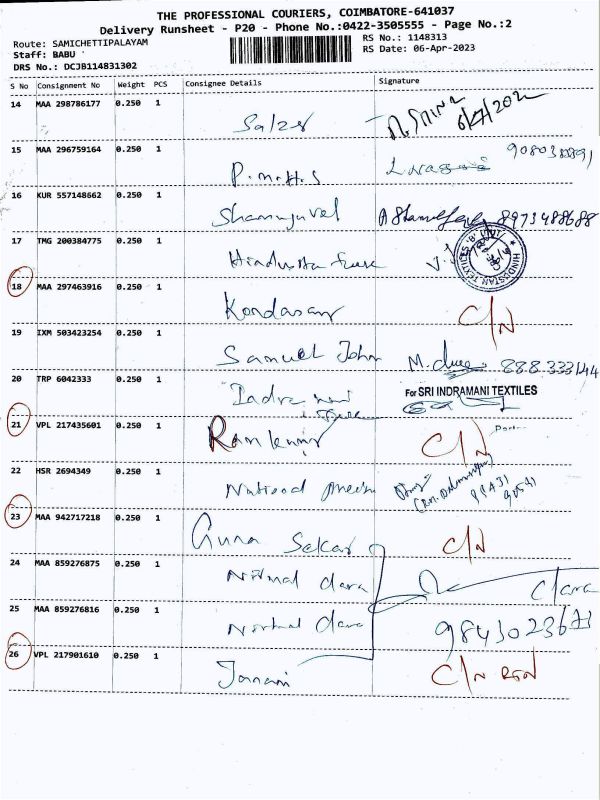 THE PROFESSIONAL COURIERS, COIMBATORE-641037
Delivery Runsheet - P20 - Phone No.:0422-3505555 - Page No.:2
Route: SAMICHETTIPALAYAM RS No.: 1148313
Staff: BABU RS Date: 06-Apr-2023
DRS No.: DCJB114831302
S No Consignment No Weight PCS Consignee Details Signature
14 MAA 298786177 0.250 1 Salzer
15 MAA 296759164 0.250 1 P.M.H.S
16 KUR 557148662 0.250 1 Shanmugavel 8973488688
17 TMG 200384775 0.250 1 Hindustan
HINDUSTAN TEXTILES
18 MAA 297463916 0.250 1 Kondasamy C/N
19 IXM 503423254 0.250 1 Samuel John M.
20 TRP 6042333 0.250 1 Indra mani For SRI INDRAMANI TEXTILES
21 VPL 217435601 0.250 1 Ramkumar C/N
22 HSR 2694349 0.250 1 National
23 MAA 942717218 0.250 1 Guna Sekar C/N
24 MAA 859276875 0.250 1 Nirmal Clara Clara
25 MAA 859276816 0.250 1 Nirmal Clara
26 VPL 217901610 0.250 1 Janani C/N